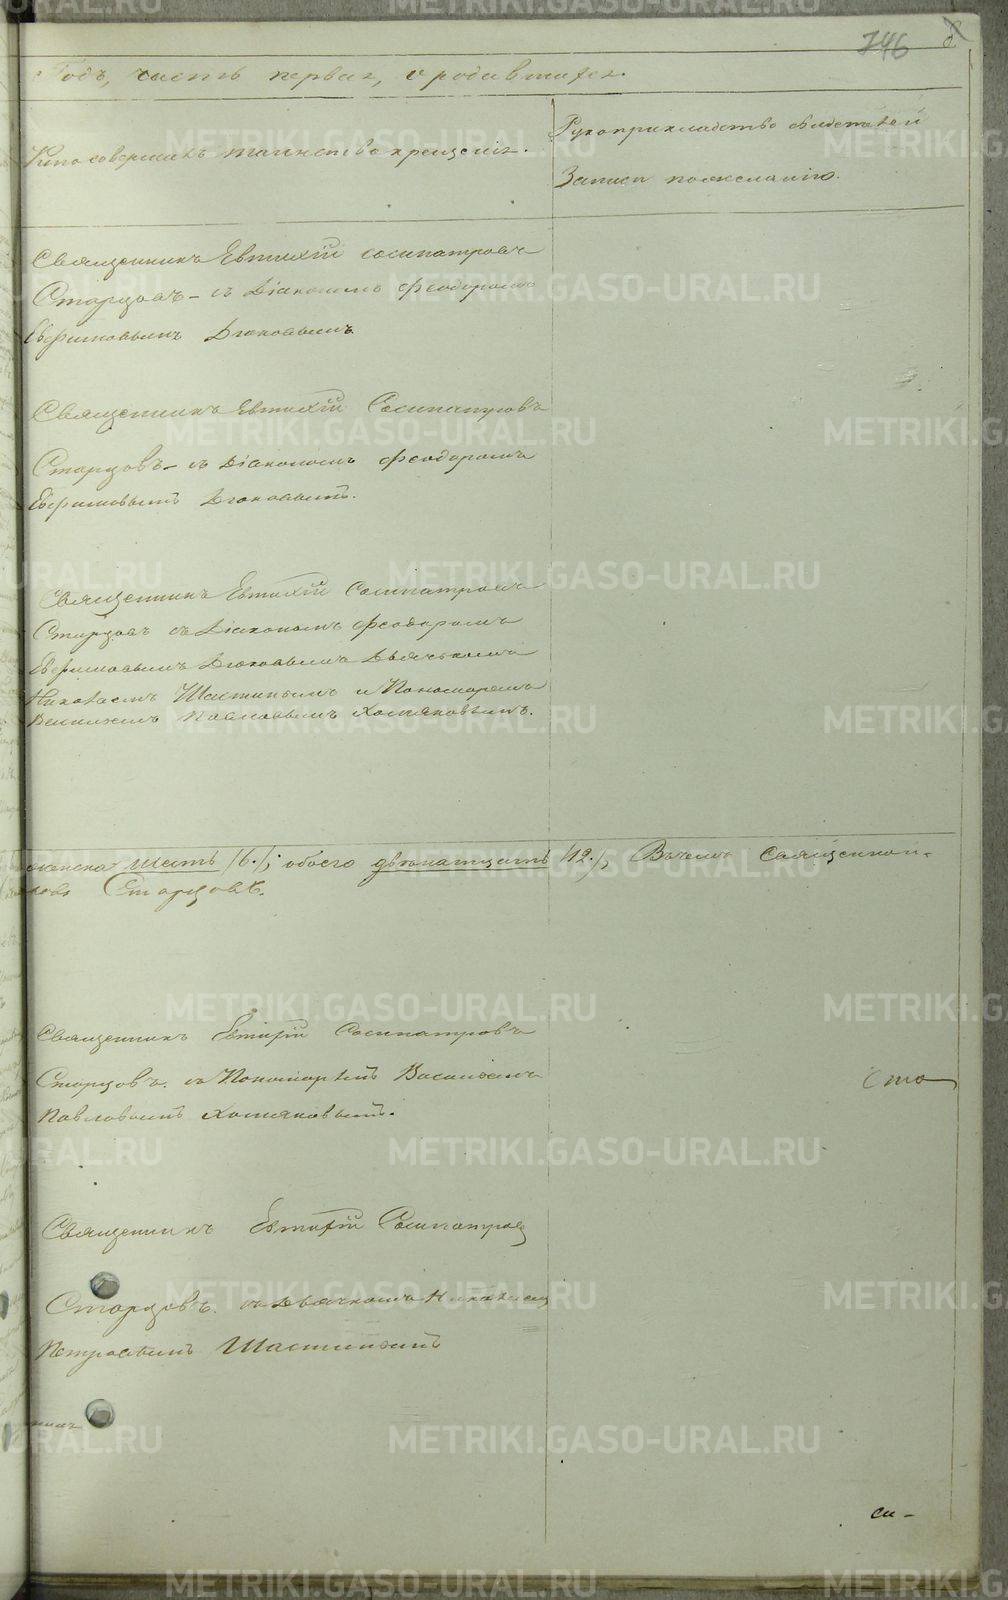 746
Годъ, часть первая, о родившихся.
Кто совершалъ таинство крещенія.
Рукоприкладство свидѣтелей
записи по желанію.
Священникъ Евтихій Сосипатровъ
Старцовъ съ Діакономъ Феодоромъ
Евфимовымъ Дюковымъ
Священникъ Евтихій Сосипатровъ
Старцовъ съ Діакономъ Феодоромъ
Евфимовымъ Дюковымъ.
Священникъ Евтихій Сосипатровъ
Старцовъ съ Діакономъ Феодоромъ
Евфимовымъ Дюковымъ Дьячкомъ
Николаемъ Шастинымъ и Пономаремъ
Василіемъ Павловымъ Хомяковымъ.
женска шесть /6./, обоего двѣнатцать /12./, Въ чемъ Священно-
Старцовъ.
Священникъ Евтихій Сосипатровъ
Старцовъ съ Пономаремъ Василіемъ
Павловымъ Хомяковымъ.
Сто
Священникъ Евтихій Сосипатровъ
Старцовъ съ Дьячкомъ Николаемъ
Петровымъ Шастинымъ
си-
METRIKI.GASO-URAL.RU